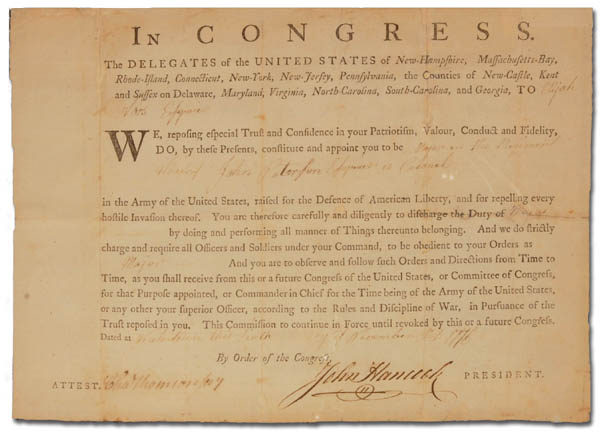 IN CONGRESS.
The DELEGATES of the UNITED STATES of New-Hampshire, Massachusetts-Bay,
Rhode-Island, Connecticut, New-York, New-Jersey, Pennsylvania, the Counties of New-Castle, Kent
and Sussex on Delaware, Maryland, Virginia, North-Carolina, South-Carolina, and Georgia, TO Elijah
Esquire
WE, reposing especial Trust and Confidence in your Patriotism, Valour, Conduct and Fidelity,
DO, by these Presents, constitute and appoint you to be Major in the Regiment
whereof John Paterson Esquire is Colonel
in the Army of the United States, raised for the Defence of American Liberty, and for repelling every
hostile Invasion thereof. You are therefore carefully and diligently to discharge the Duty of Major
by doing and performing all manner of Things thereunto belonging. And we do strictly
charge and require all Officers and Soldiers under your Command, to be obedient to your Orders as
Major And you are to observe and follow such Orders and Directions from Time to
Time, as you shall receive from this or a future Congress of the United States, or Committee of Congress,
for that Purpose appointed, or Commander in Chief for the Time being of the Army of the United States,
or any other your superior Officer, according to the Rules and Discipline of War, in Pursuance of the
Trust reposed in you. This Commission to continue in Force until revoked by this or a future Congress.
Dated at 1776
By Order of the Congress,
ATTEST. Cha Thomson secy John Hancock PRESIDENT.